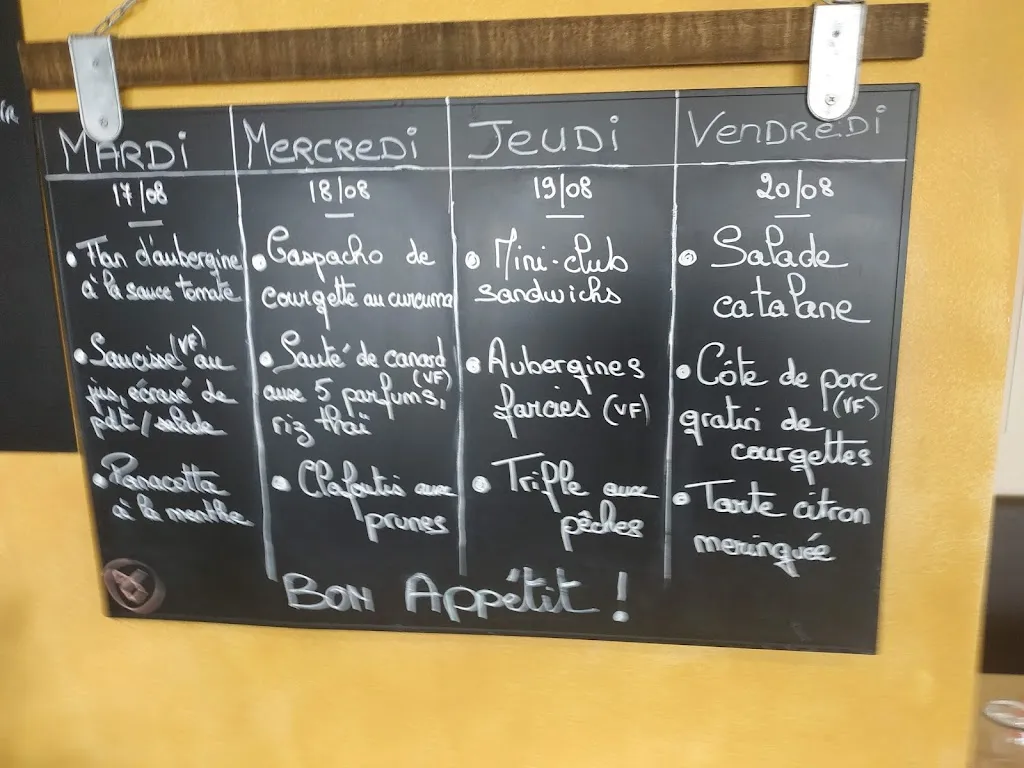 MARDI
17/08
• Flan d'aubergine
à la sauce tomate
• Saucisse (VF) au
jus, écrasé de
pdt/salade
• Panacotta
à la menthe
MERCREDI
18/08
• Gaspacho de
courgette au curcuma
• Sauté de canard
(VF)
aux 5 parfums,
riz thaï
• Clafoutis aux
prunes
JEUDI
19/08
• Mini-club
sandwichs
• Aubergines
farcies (VF)
• Trifle aux
pêches
VENDREDI
20/08
• Salade
catalane
• Côte de porc
(VF)
gratin de
courgettes
• Tarte citron
meringuée
BON Appétit !